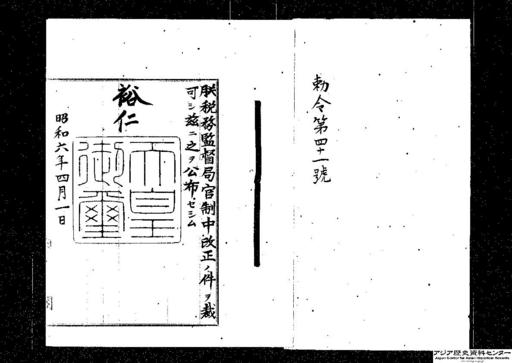 勅令第四十一號
朕税務監督局官制中改正ノ件ヲ裁
可シ茲ニ之ヲ公布セシム
裕仁
天皇
御璽
昭和六年四月一日
アジア歴史資料センター
Japan Center for Asian Historical Records